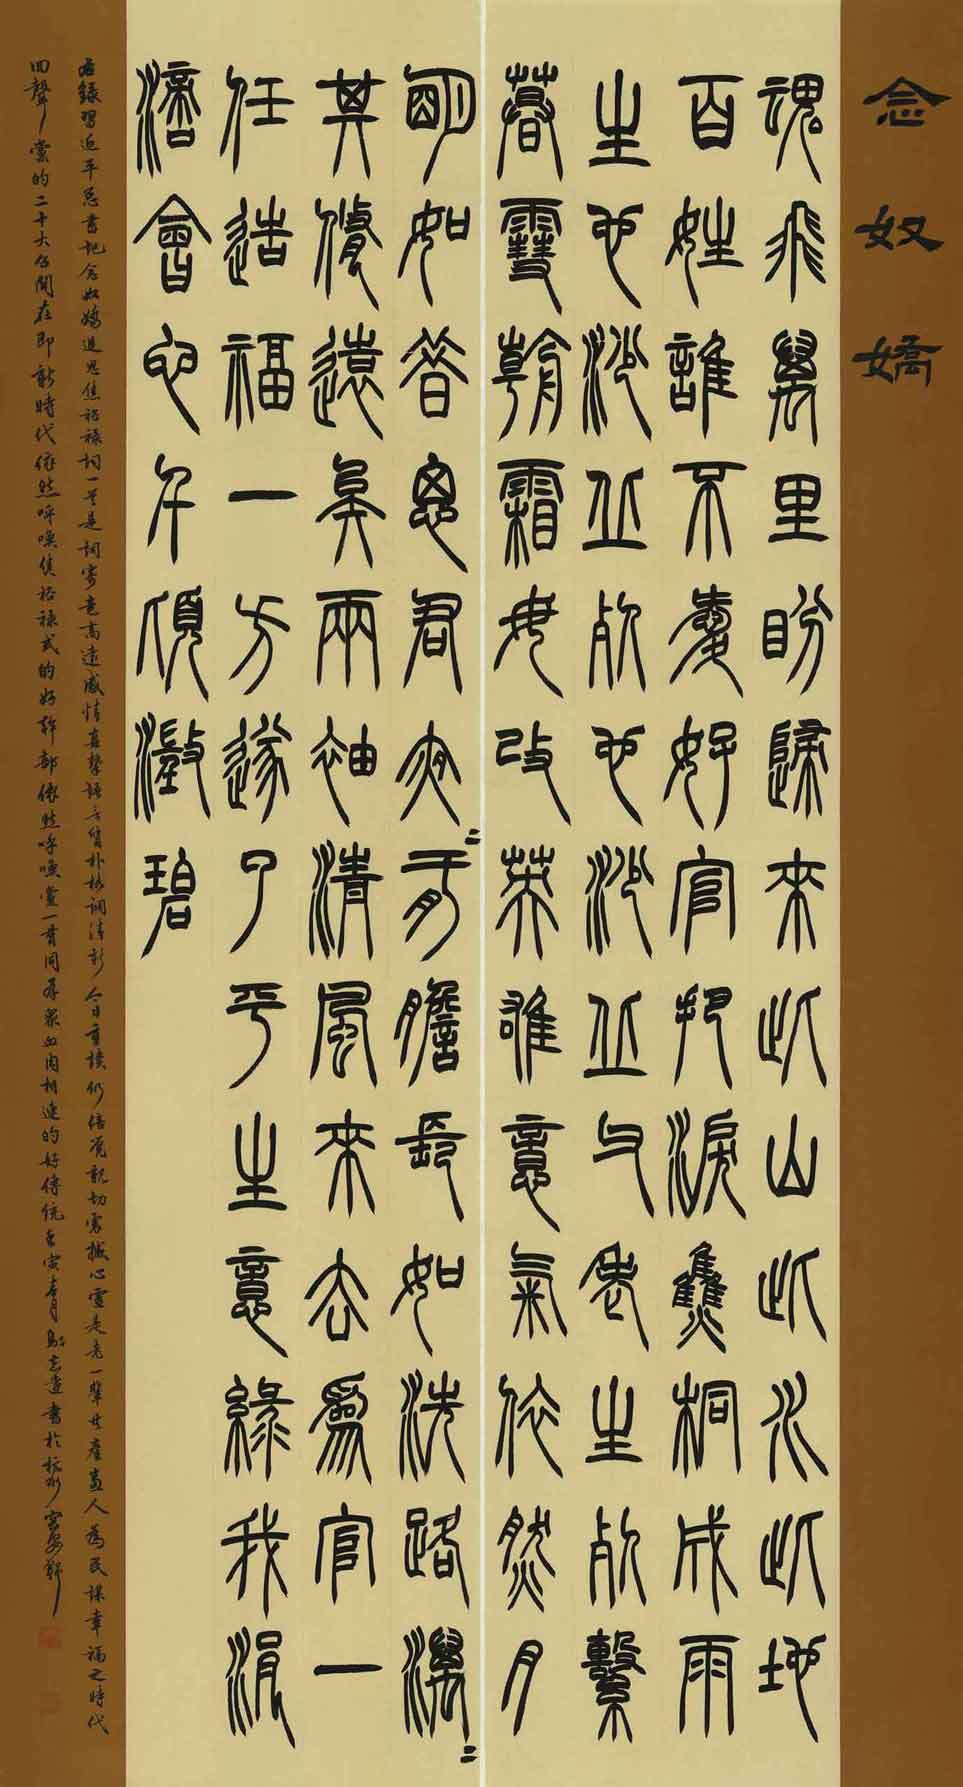 念奴嬌
魂飛萬里盼歸來此山此水此地
百姓誰不愛好官把淚焦桐成雨
生也沙丘死也沙丘父老生死繫
暮雪朝霜毋改英雄意氣依然月
明如昔思君夜〻肝膽長如洗路漫〻
其修遠矣兩袖清風來去爲官一
任造福一方遂了平生意綠我涓
滴會它千頃澂碧
右錄習近平總書記念奴嬌追思焦裕祿詞一首是詞寄意高遠感情真摯語言質朴格調清新今日重讀仍倍覺親切震撼心靈是老一輩共產黨人為民謀幸福之時代
回聲黨的二十大召開在即新時代依然呼喚焦裕祿式的好幹部依然呼喚黨一貫同群眾血肉相連的好傳統壬寅春月書於杭州